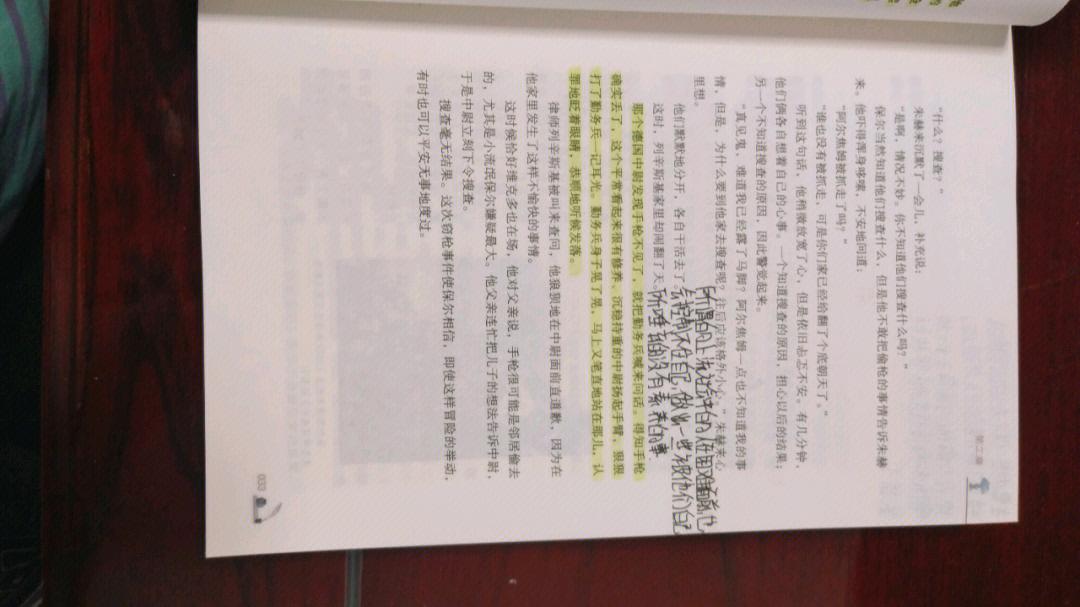 第二章
“什么？搜查？”
朱赫来沉默了一会儿，补充说：
“是啊，情况不妙。你不知道他们搜查什么吗？”
保尔当然知道他们搜查什么，但是他不敢把偷枪的事情告诉朱赫
来。他吓得浑身哆嗦，不安地问道：
“阿尔焦姆被抓走了吗？”
“谁也没有被抓走，可是你们家已经给翻了个底朝天了。”
听到这句话，他稍微放宽了心，但是依旧忐忑不安。有几分钟，
他们俩各自想着自己的心事。一个知道搜查的原因，担心以后的结果；
另一个不知道搜查的原因，因此警觉起来。
“真见鬼，难道我已经露了马脚？阿尔焦姆一点也不知道我的事
情，但是，为什么要到他家去搜查呢？往后应该格外小心。”朱赫来心
里想。
他们默默地分开，各自干活去了。
这时，列辛斯基家里却闹翻了天。
那个德国中尉发现手枪不见了，就把勤务兵喊来问话。得知手枪
确实丢了，这个平常看起来很有修养、沉稳持重的中尉扬起手臂，狠狠
打了勤务兵一记耳光。勤务兵身子晃了晃，马上又笔直地站在那儿，认
罪地眨着眼睛，恭顺地听候发落。
律师列辛斯基被叫来查问，他狼狈地在中尉面前直道歉，因为在
他家里发生了这样不愉快的事情。
这时候恰好维克多也在场，他对父亲说，手枪很可能是邻居偷去
的，尤其是小流氓保尔嫌疑最大。他父亲连忙把儿子的想法告诉中尉，
于是中尉立刻下令搜查。
搜查毫无结果。这次窃枪事件使保尔相信，即使这样冒险的举动，
有时也可以平安无事地度过。
所谓的上流社会的人在困难面前，也
会控制不住自己，做出一些为被他们自己
所唾弃的没有素养的事
033